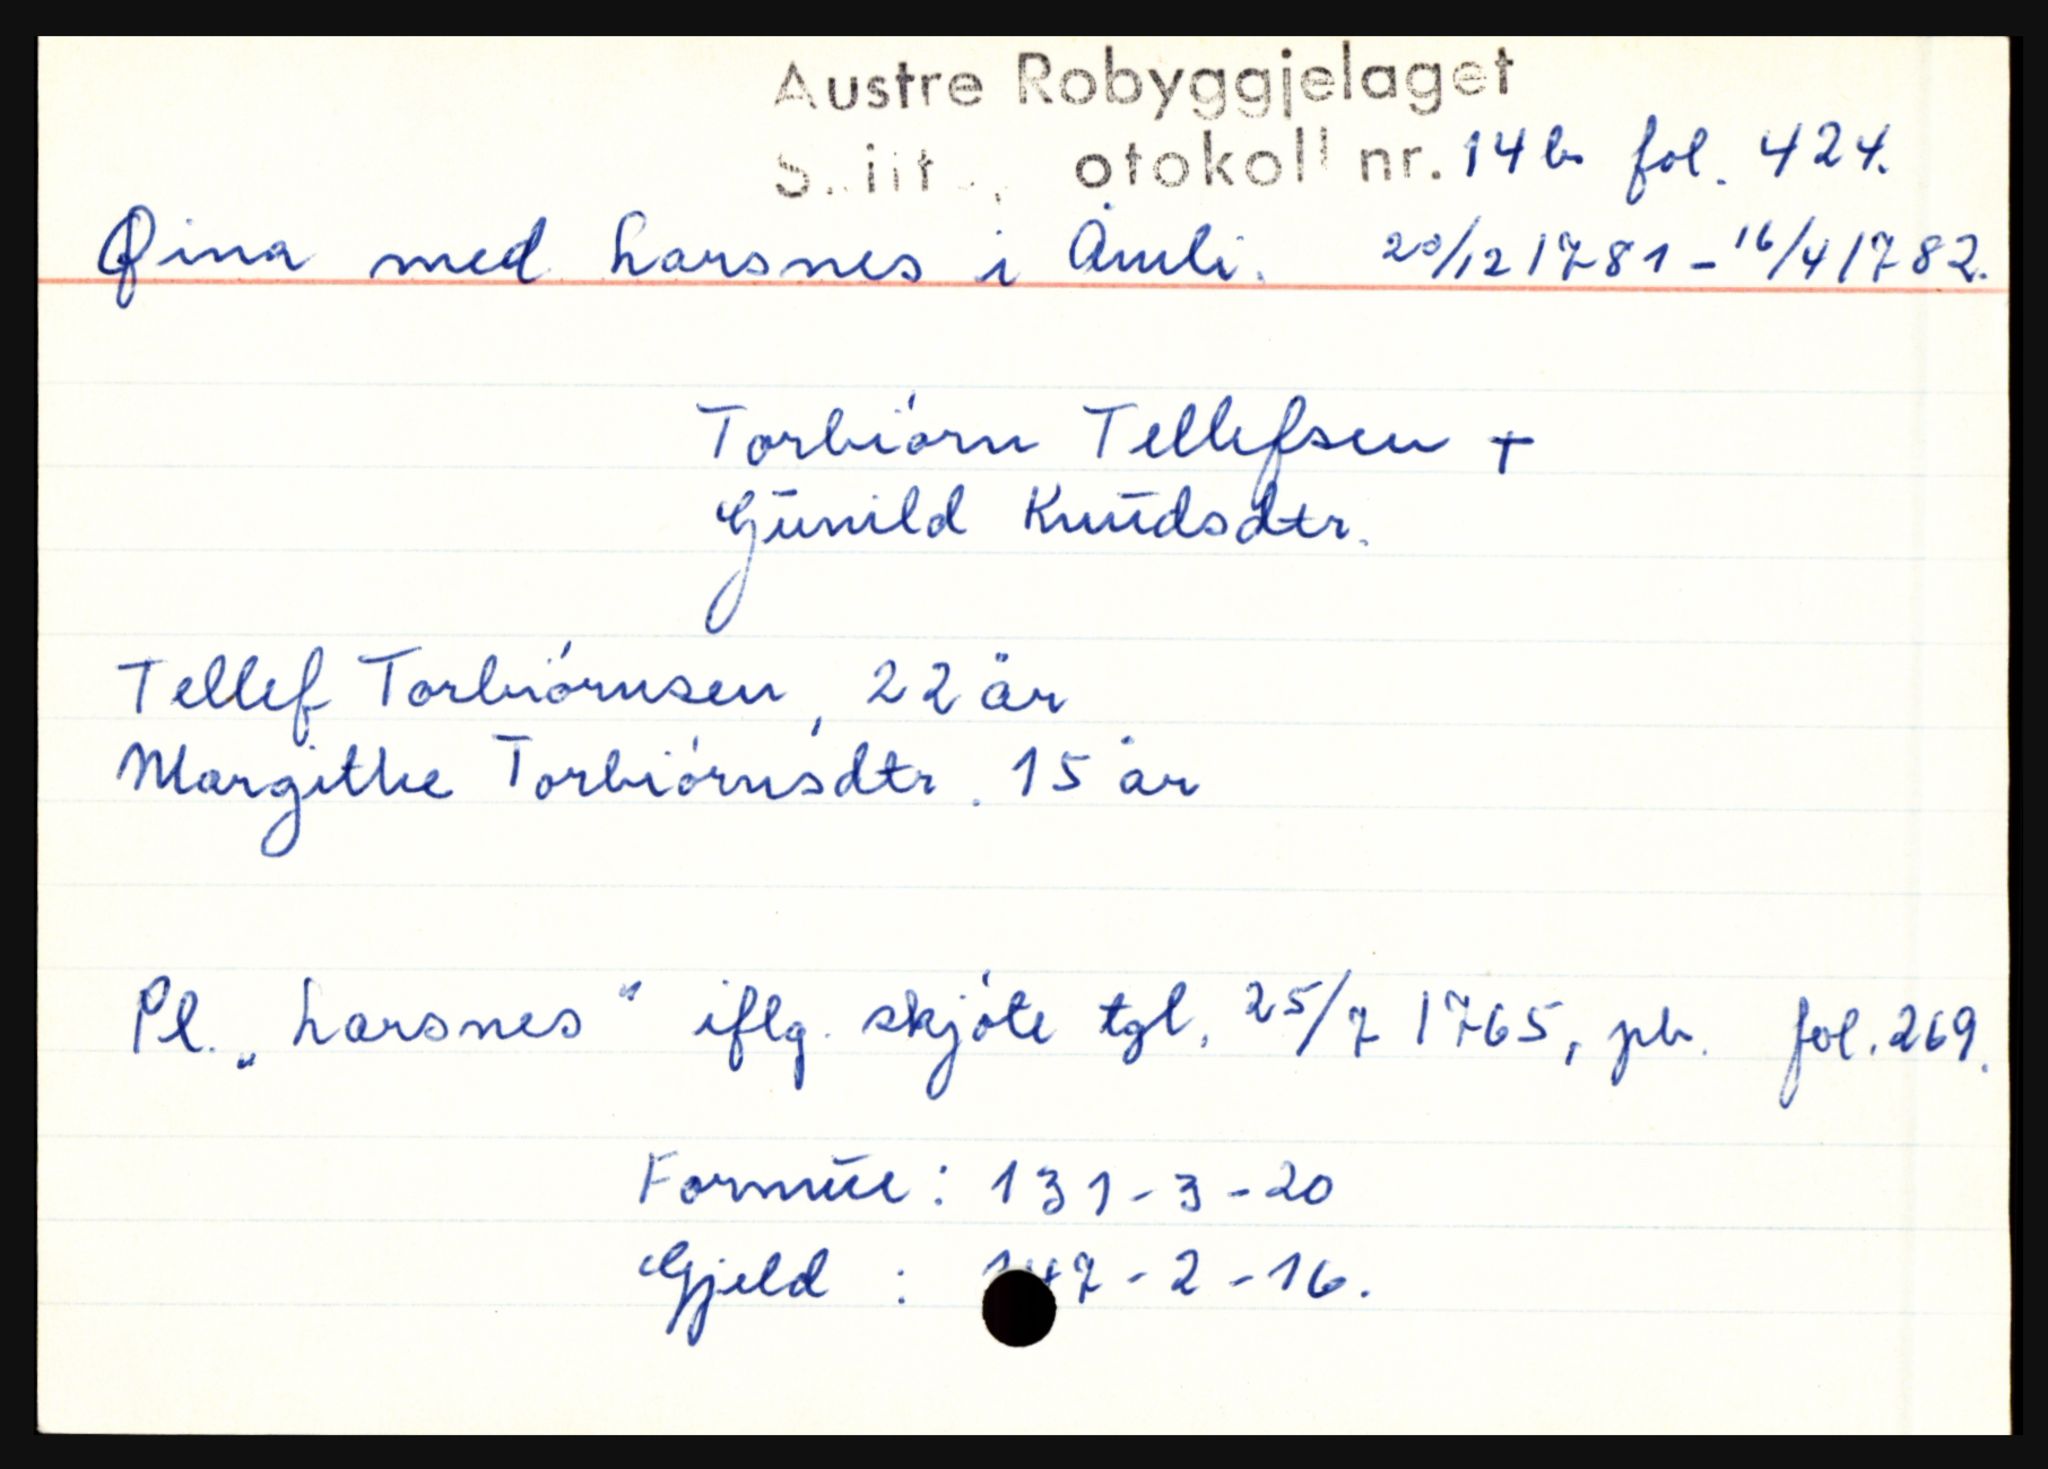 Austre Robyggjelaget
otokoll nr. 14 b fol. 424.
Qina med Larsnes i Åmli. 20/12 1781 - 16/4 1782.
Torbiørn Tellefsen +
Gunild Knudsdtr.
Tellef Torbiørnsen, 22 år
Margithe Torbiørnsdtr. 15 år
Pl. „Larsnes" iflg. skjøte tgl. 25/7 1765, pb. fol. 269.
Formue: 131-3-20
Gjeld : 147-2-16.